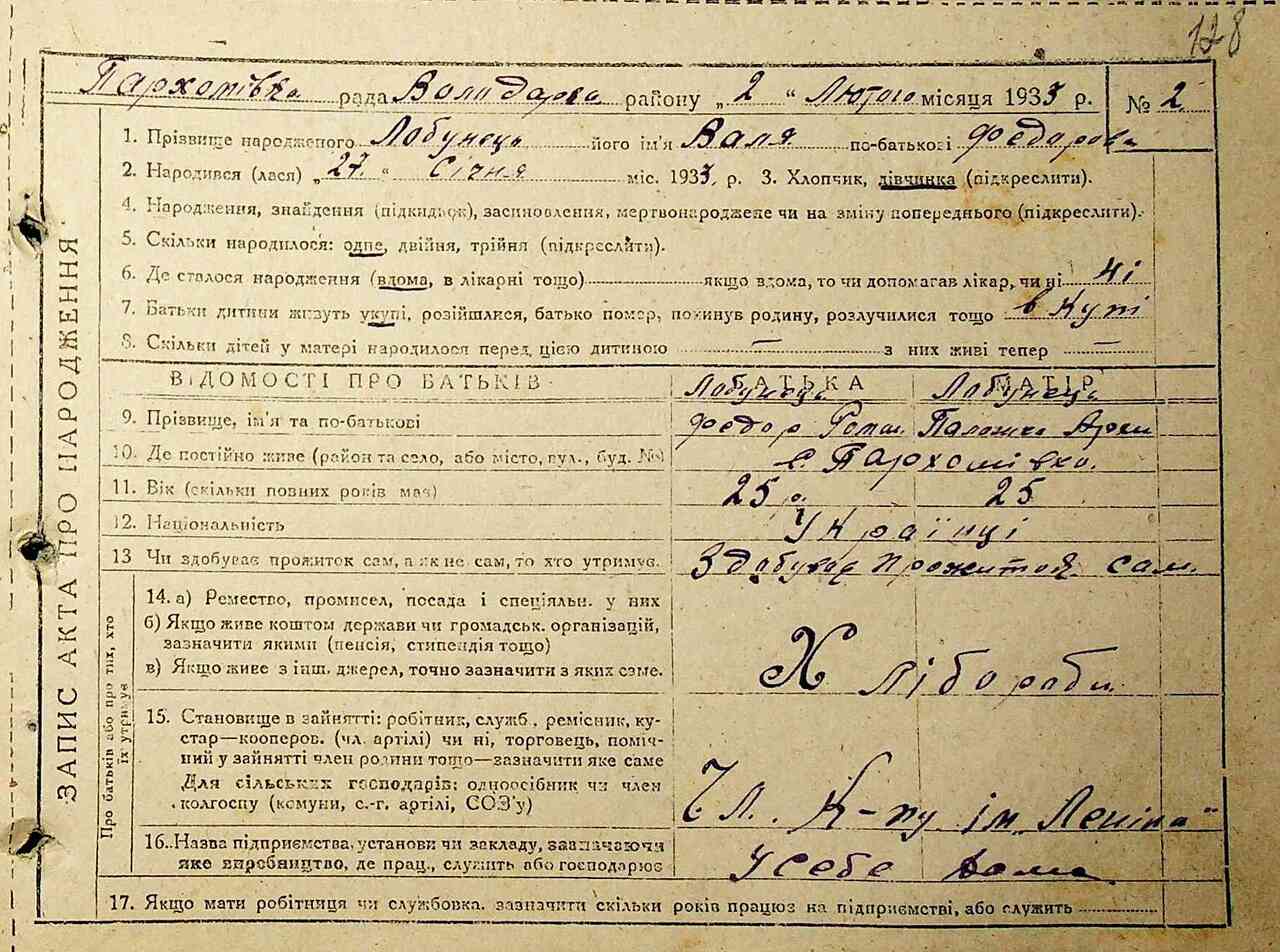 128
Пархомівка рада Володарка району „2“ Лютого місяця 1933 р. № 2
ЗАПИС АКТА ПРО НАРОДЖЕННЯ
1. Прізвище народженого Лобунець його ім'я Валя по-батькові Федорова
2. Народився (лася) „27“ Січня міс. 1933 р. 3. Хлопчик, дівчинка (підкреслити).
4. Народження, знайдення (підкидьок), засиновлення, мертвонароджене чи на зміну попереднього (підкреслити).
5. Скільки народилося: одне, двійня, трійня (підкреслити).
6. Де сталося народження (вдома, в лікарні тощо) якщо вдома, то чи допомагав лікар, чи ні Ні
7. Батьки дитини живуть укупі, розійшлися, батько помер, покинув родину, розлучилися тощо в Купі
8. Скільки дітей у матері народилося перед цією дитиною — з них живі тепер —
ВІДОМОСТІ ПРО БАТЬКІВ БАТЬКА МАТІР
Лобунець Лобунець
9. Прізвище, ім'я та по-батькові Федор Роман Палажка
10. Де постійно живе (район та село, або місто, вул., буд. №) с. Пархомівка.
11. Вік (скільки повних років має) 25 р. 25
12. Національність Українці
13 Чи здобуває прожиток сам, а як не сам, то хто утримує. Здобуває прожиток сам.
Про батьків або про тих, хто їх утримує
14. а) Ремество, промисел, посада і спеціяльн. у них
б) Якщо живе коштом держави чи громадськ. організацій,
зазначити якими (пенсія, стипендія тощо)
в) Якщо живе з інш. джерел, точно зазначити з яких саме.
Хлібороби
15. Становище в зайнятті: робітник, служб., ремісник, ку-
стар—кооперов. (чл. артілі) чи ні, торговець, поміч-
ний у зайнятті член родини тощо—зазначити яке саме
Для сільських господарів: одноосібник чи член
колгоспу (комуни, с.-г. артілі, СОЗ'у)
Чл. К-пу ім. Леніна"
16. Назва підприємства, установи чи закладу, зазначаючи
яке виробництво, де прац., служить або господарює
У себе дома
17. Якщо мати робітниця чи службовка, зазначити скільки років працює на підприємстві, або служить